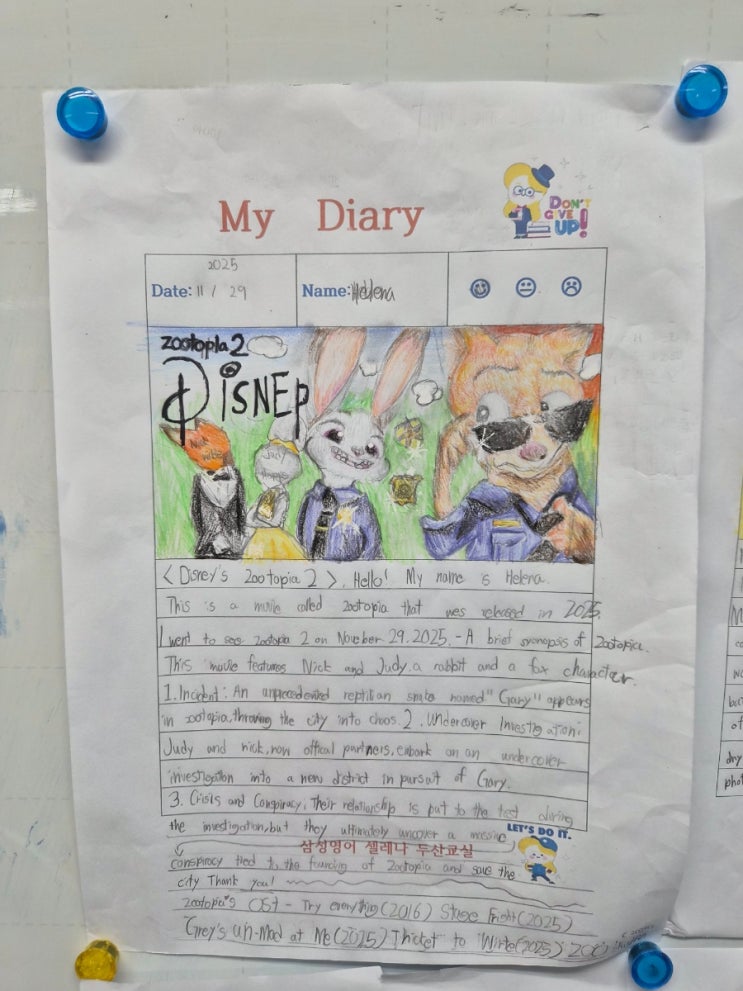 My Diary
DON'T GIVE UP!
2025
Date: 11 / 29
Name: Helena
zootopia 2
DiSNEP
Nick
Judy
< Disney's zootopia 2 >. Hello! My name is Helena.
This is a movie called zootopia that was released in 2025.
I went to see zootopia 2 on November 29.2025. - A brief synopsis of zootopia.
This movie features Nick and Judy.a rabbit and a fox character.
1.Incident: An unprecedented reptilian snake named "Gary" appears
in zootopia,throwing the city into chaos. 2. Undercover Investigation:
Judy and nick,now offical partners, embark on an undercover
investigation into a new district in pursuit of Gary.
3. Crisis and Conspiracy, Their relationship is put to the test during
the investigation,but they ultimately uncover a massive
LET'S DO IT.
삼성영어 셀레나 두산교실
conspiracy tied to the founding of zootopia and save the
city Thank you!
zootopia's OST - Try everything (2016) Stage Fright (2025)
un-Mad at Me (2025) Thicket to (2025) zoo